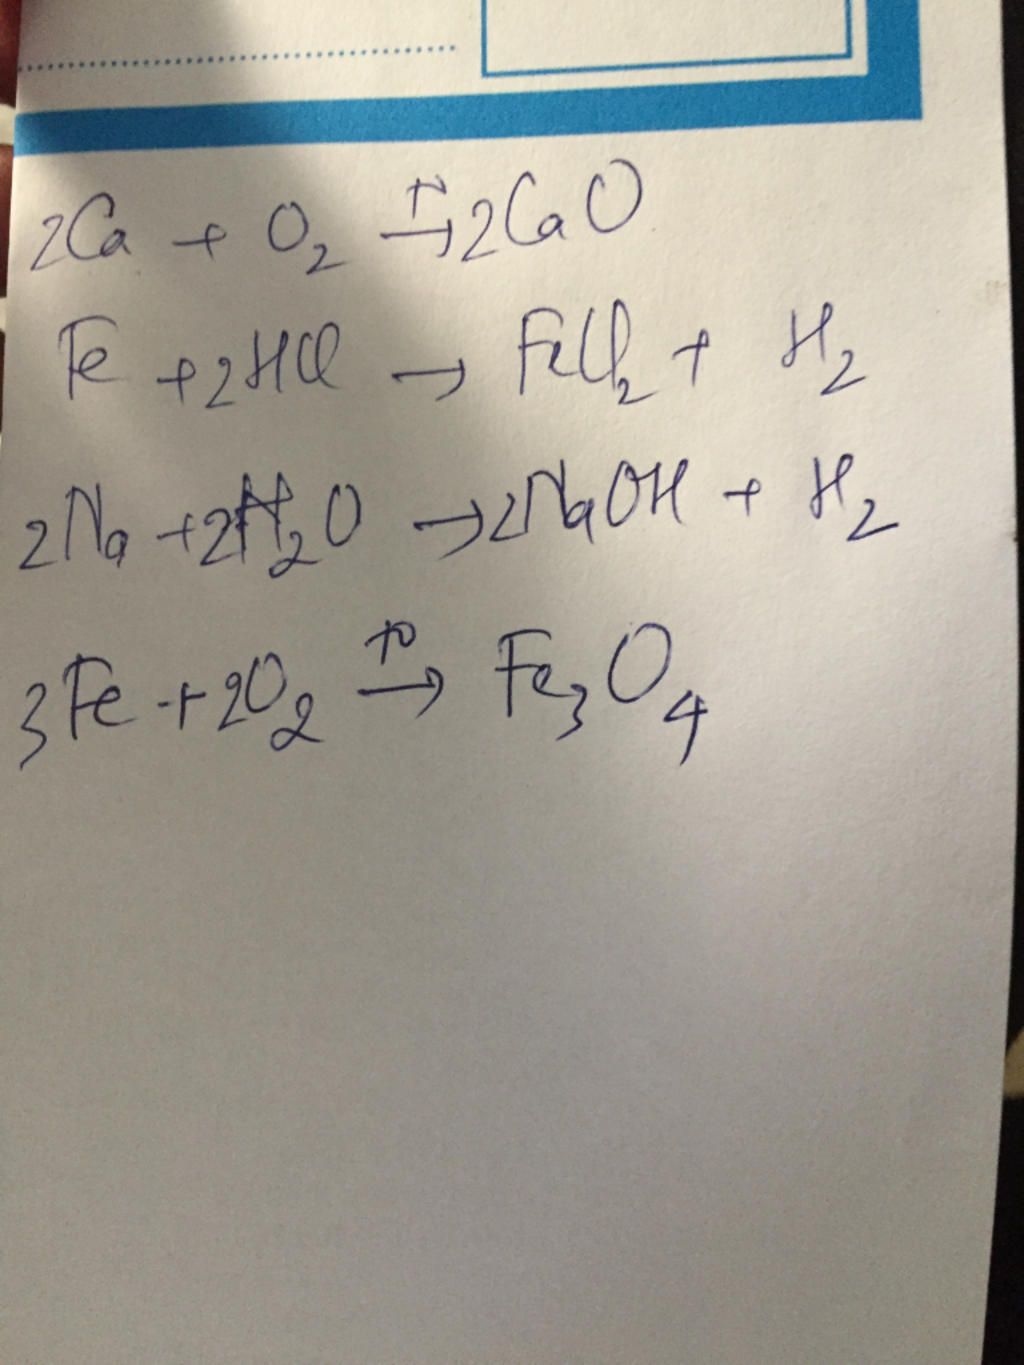 2Ca + O₂ →(t°) 2CaO
Fe + 2HCl → FeCl₂ + H₂
2Na + 2H₂O → 2NaOH + H₂
3Fe + 2O₂ →(t°) Fe₃O₄